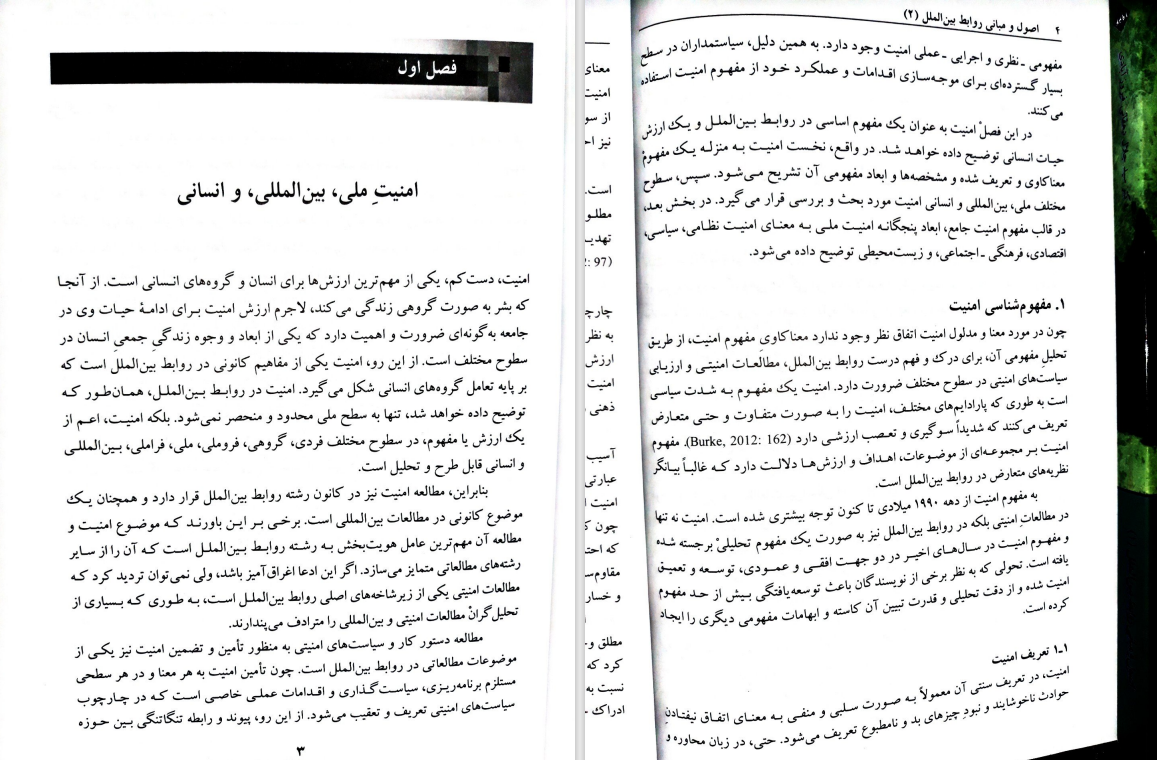 فصل اول
امنیتِ ملی، بین‌المللی، و انسانی
امنیت، دست‌کم، یکی از مهم‌ترین ارزش‌ها برای انسان و گروه‌های انسانی است. از آنجا
که بشر به صورت گروهی زندگی می‌کند، لاجرم ارزش امنیت برای ادامهٔ حیات وی در
جامعه به‌گونه‌ای ضرورت و اهمیت دارد که یکی از ابعاد و وجوه زندگیِ جمعیِ انسان در
سطوح مختلف است. از این رو، امنیت یکی از مفاهیم کانونی در روابط بین‌الملل است که
بر پایه تعامل گروه‌های انسانی شکل می‌گیرد. امنیت در روابط بین‌الملل، همان‌طور که
توضیح داده خواهد شد، تنها به سطح ملی محدود و منحصر نمی‌شود. بلکه امنیت، اعم از
یک ارزش یا مفهوم، در سطوح مختلف فردی، گروهی، فروملی، ملی، فراملی، بین‌المللی
و انسانی قابل طرح و تحلیل است.
بنابراین، مطالعه امنیت نیز در کانون رشته روابط بین‌الملل قرار دارد و همچنان یک
موضوع کانونی در مطالعات بین‌المللی است. برخی بر این باورند که موضوع امنیت و
مطالعه آن مهم‌ترین عامل هویت‌بخش به رشته روابط بین‌الملل است که آن را از سایر
رشته‌های مطالعاتی متمایز می‌سازد. اگر این ادعا اغراق‌آمیز باشد، ولی نمی‌توان تردید کرد که
مطالعات امنیتی یکی از زیرشاخه‌های اصلی روابط بین‌الملل است، به طوری که بسیاری از
تحلیل‌گرانْ مطالعات امنیتی و بین‌المللی را مترادف می‌پندارند.
مطالعه دستور کار و سیاست‌های امنیتی به منظور تأمین و تضمین امنیت نیز یکی از
موضوعات مطالعاتی در روابط بین‌الملل است. چون تأمین امنیت به هر معنا و در هر سطحی
مستلزم برنامه‌ریزی، سیاست‌گذاری و اقدامات عملی خاصی است که در چارچوب
سیاست‌های امنیتی تعریف و تعقیب می‌شود. از این رو، پیوند و رابطه تنگاتنگی بین حوزه
۳
۴ اصول و مبانی روابط بین‌الملل (۲)
مفهومی ـ نظری و اجرایی ـ عملی امنیت وجود دارد. به همین دلیل، سیاستمداران در سطح
بسیار گسترده‌ای برای موجه‌سازی اقدامات و عملکرد خود از مفهوم امنیت استفاده
می‌کنند.
در این فصلْ امنیت به عنوان یک مفهوم اساسی در روابط بین‌الملل و یک ارزش
حیات انسانی توضیح داده خواهد شد. در واقع، نخست امنیت به منزله یک مفهومْ
معناکاوی و تعریف شده و مشخصه‌ها و ابعاد مفهومی آن تشریح می‌شود. سپس، سطوح
مختلف ملی، بین‌المللی و انسانی امنیت مورد بحث و بررسی قرار می‌گیرد. در بخش بعد،
در قالب مفهوم امنیت جامع، ابعاد پنجگانه امنیت ملی به معنای امنیت نظامی، سیاسی،
اقتصادی، فرهنگی ـ اجتماعی، و زیست‌محیطی توضیح داده می‌شود.
۱. مفهوم‌شناسی امنیت
چون در مورد معنا و مدلول امنیت اتفاق نظر وجود ندارد معناکاوی مفهوم امنیت، از طریق
تحلیل مفهومی آن، برای درک و فهم درست روابط بین‌الملل، مطالعات امنیتی و ارزیابی
سیاست‌های امنیتی در سطوح مختلف ضرورت دارد. امنیت یک مفهوم به شدت سیاسی
است به طوری که پارادایم‌های مختلف، امنیت را به صورت متفاوت و حتی متعارض
تعریف می‌کنند که شدیداً سوگیری و تعصب ارزشی دارد (Burke, 2012: 162). مفهوم
امنیت بر مجموعه‌ای از موضوعات، اهداف و ارزش‌ها دلالت دارد که غالباً بیانگر
نظریه‌های متعارض در روابط بین‌الملل است.
به مفهوم امنیت از دهه ۱۹۹۰ میلادی تا کنون توجه بیشتری شده است. امنیت نه تنها
در مطالعاتِ امنیتی بلکه در روابط بین‌الملل نیز به صورت یک مفهوم تحلیلیْ برجسته شده
و مفهوم امنیت در سال‌های اخیر در دو جهت افقی و عمودی، توسعه و تعمیق
یافته است. تحولی که به نظر برخی از نویسندگان باعث توسعه‌یافتگی بیش از حد مفهوم
امنیت شده و از دقت تحلیلی و قدرت تبیین آن کاسته و ابهامات مفهومی دیگری را ایجاد
کرده است.
۱-۱ تعریف امنیت
امنیت، در تعریف سنتی آن معمولاً به صورت سلبی و منفی به معنای اتفاق نیفتادنِ
حوادث ناخوشایند و نبودِ چیزهای بد و نامطبوع تعریف می‌شود. حتی، در زبان محاوره و